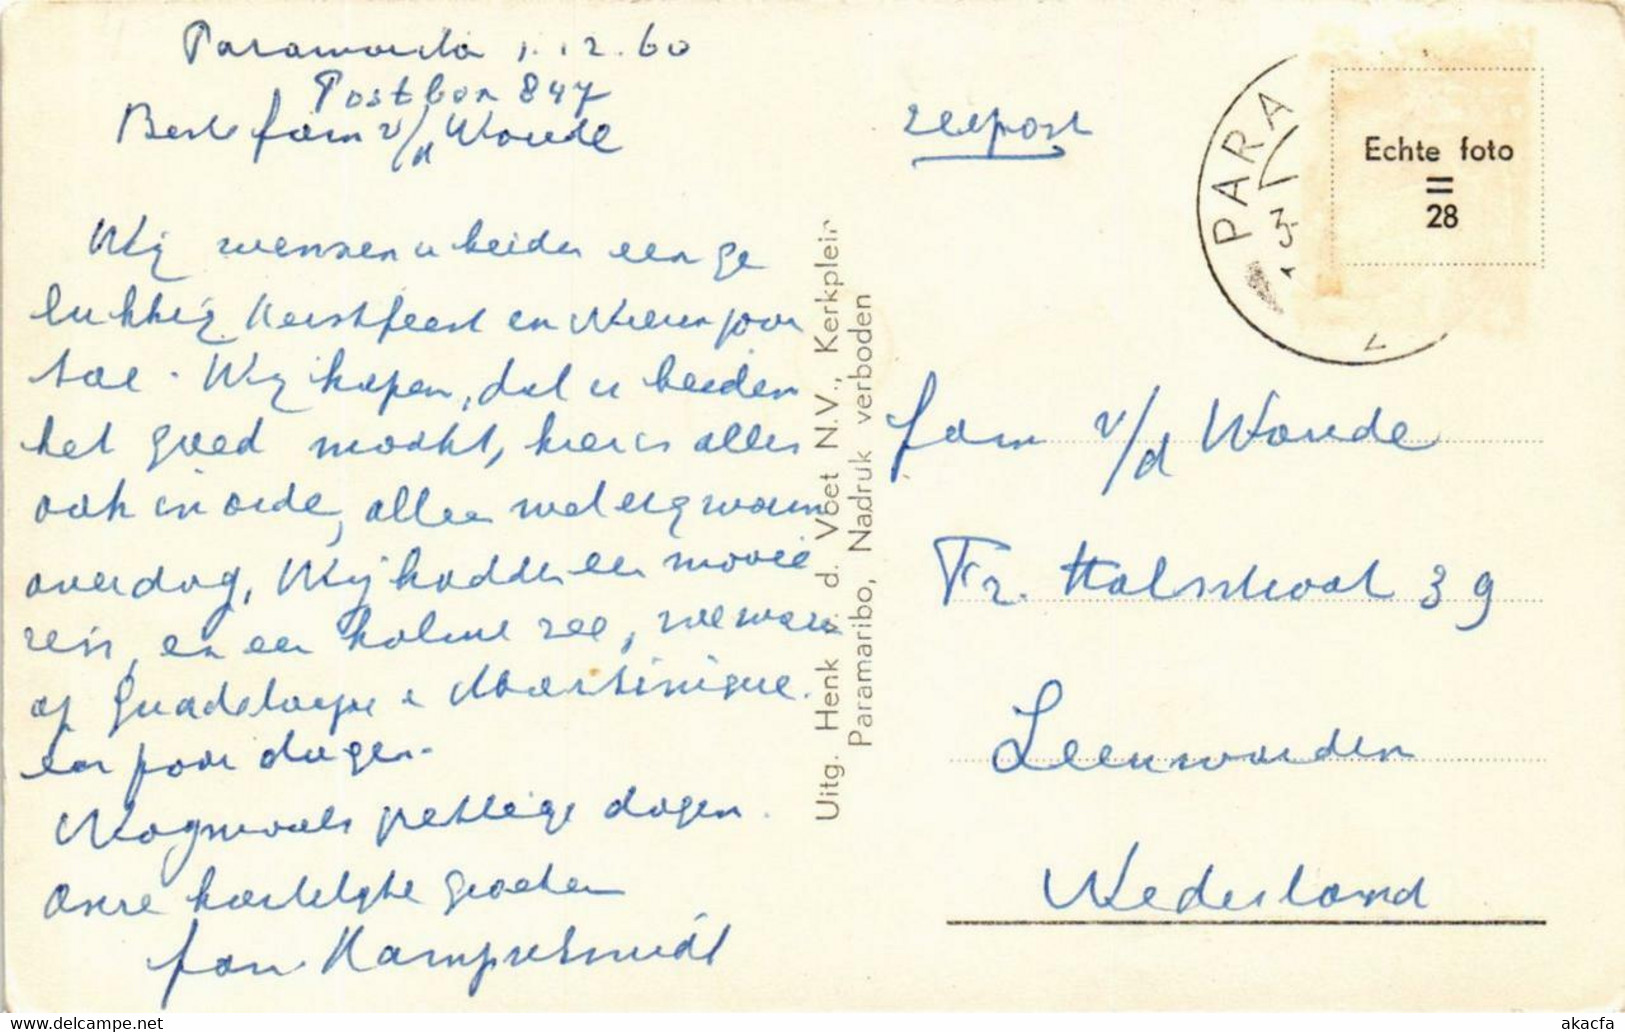 Paramaribo 1.12.60
Postbox 847
Beste fam v/d Woude
Wij wensen u beiden een ge
lukkig Kerstfeest en Nieuwjaar
toe. Wij hopen, dat u beiden
het goed maakt, hier is alles
ook in orde, alleen wel erg warm
overdag, Wij hadden een mooie
reis, en een kalme zee, we waren
op Guadeloupe en Martinique.
een paar dagen.
Nogmaals prettige dagen.
Onze hartelijke groeten
fam. Kampsschmidt
Uitg. Henk v. d. Voet N.V., Kerkplein
Paramaribo, Nadruk verboden
zeepost
PARA
Echte foto
28
fam v/d Woude
Fr. Halsstraat 39
Leeuwarden
Nederland
akacfa